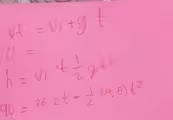 vf = vi + g t
0 =
h = vi t 1/2 g
90 = 26.2t - 1/2 (9,8) t²